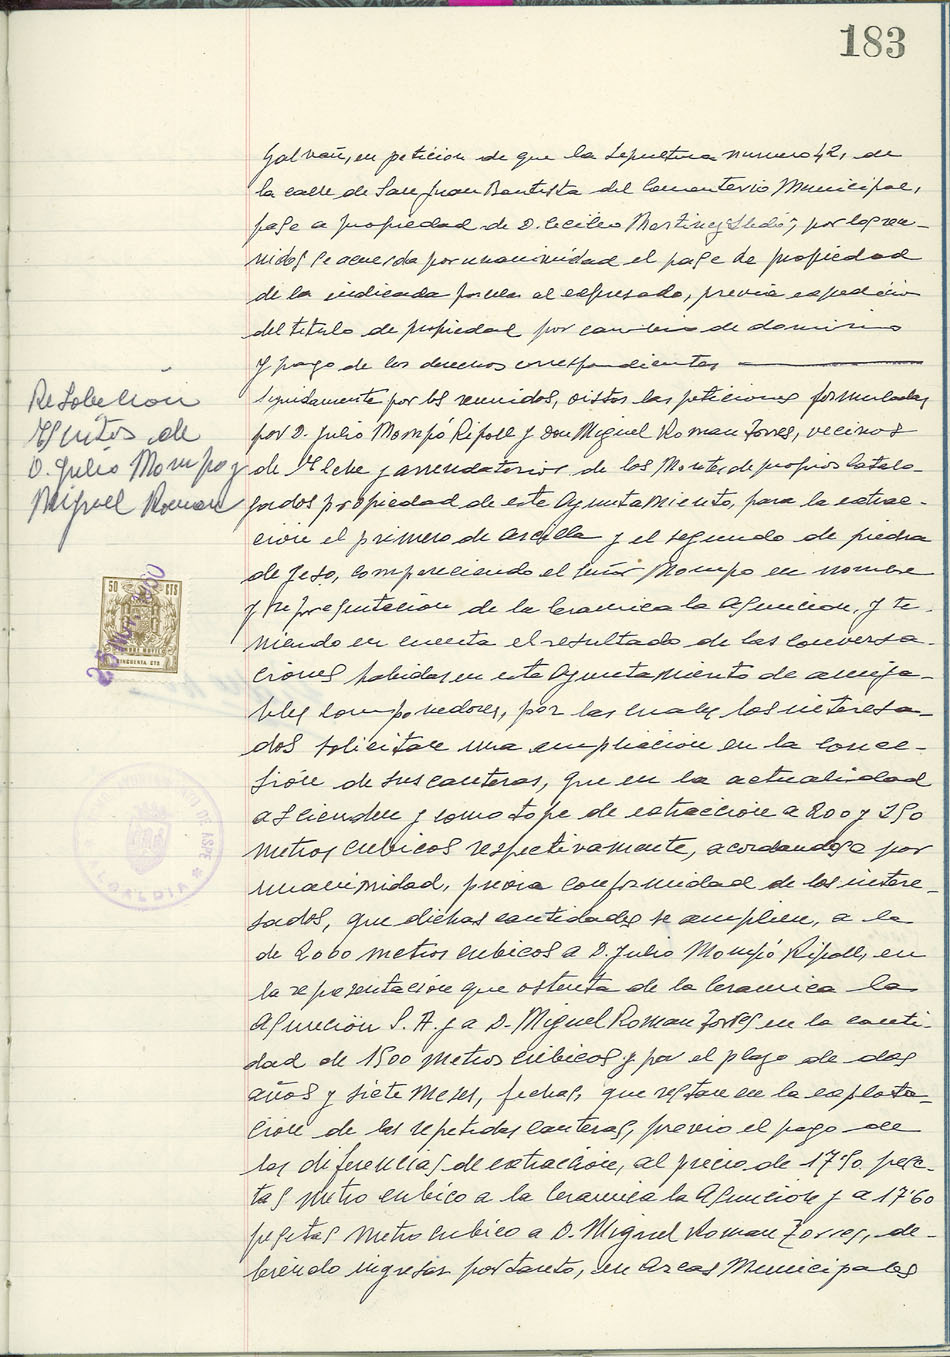 183
Galvañ, en peticion de que la sepultura numero 42, de
la calle de San Juan Bautista del Cementerio Municipal,
pase a propiedad de D. Cecilio Martinez Lledó; por los reu-
nidos se acuerda por unanimidad el pase de propiedad
de la indicada parcela al expresado, previa expedición
del titulo de propiedad por cambio de dominio
y pago de los derechos correspondientes
Resolución
Escritos de
D. Julio Mompo y
Miguel Roman
Seguidamente por los reunidos, vistas las peticiones formuladas
por D. Julio Mompó Ripoll y Don Miguel Roman Torres, vecinos
de Elche y arrendatarios de los Montes de propios Catalo-
gados propiedad de este Ayuntamiento, para la extrac-
ción el primero de arcilla y el segundo de piedra
de yeso, compareciendo el Señor Mompo en nombre
y representación de la Ceramica la Asuncion, y te-
niendo en cuenta el resultado de las conversa-
ciones habidas en este Ayuntamiento de amiga-
bles componedores, por las cuales los interesa-
dos solicitan una ampliación en la conce-
sión de sus canteras, que en la actualidad
ascienden y como tope de extracción a 200 y 250
metros cubicos respectivamente, acordandose por
unanimidad, previa conformidad de los intere-
sados, que dichas cantidades se amplien, a la
de 2000 metros cubicos a D. Julio Mompó Ripoll, en
la representación que ostenta de la Ceramica la
Asunción S.A. y a D. Miguel Roman Torres en la canti-
dad de 1500 metros cubicos y por el plazo de dos
años y siete meses, fechas, que restan en la explota-
ción de las repetidas canteras, previo el pago de
las diferencias de extracción, al precio de 17'50 pese-
tas metro cubico a la Ceramica la Asunción y a 17'60
pesetas metro cubico a D. Miguel Roman Torres, de-
biendo ingresar por tanto, en Arcas Municipales
50 CTS
CINCUENTA CTS
DE ASPE
ALCALDIA